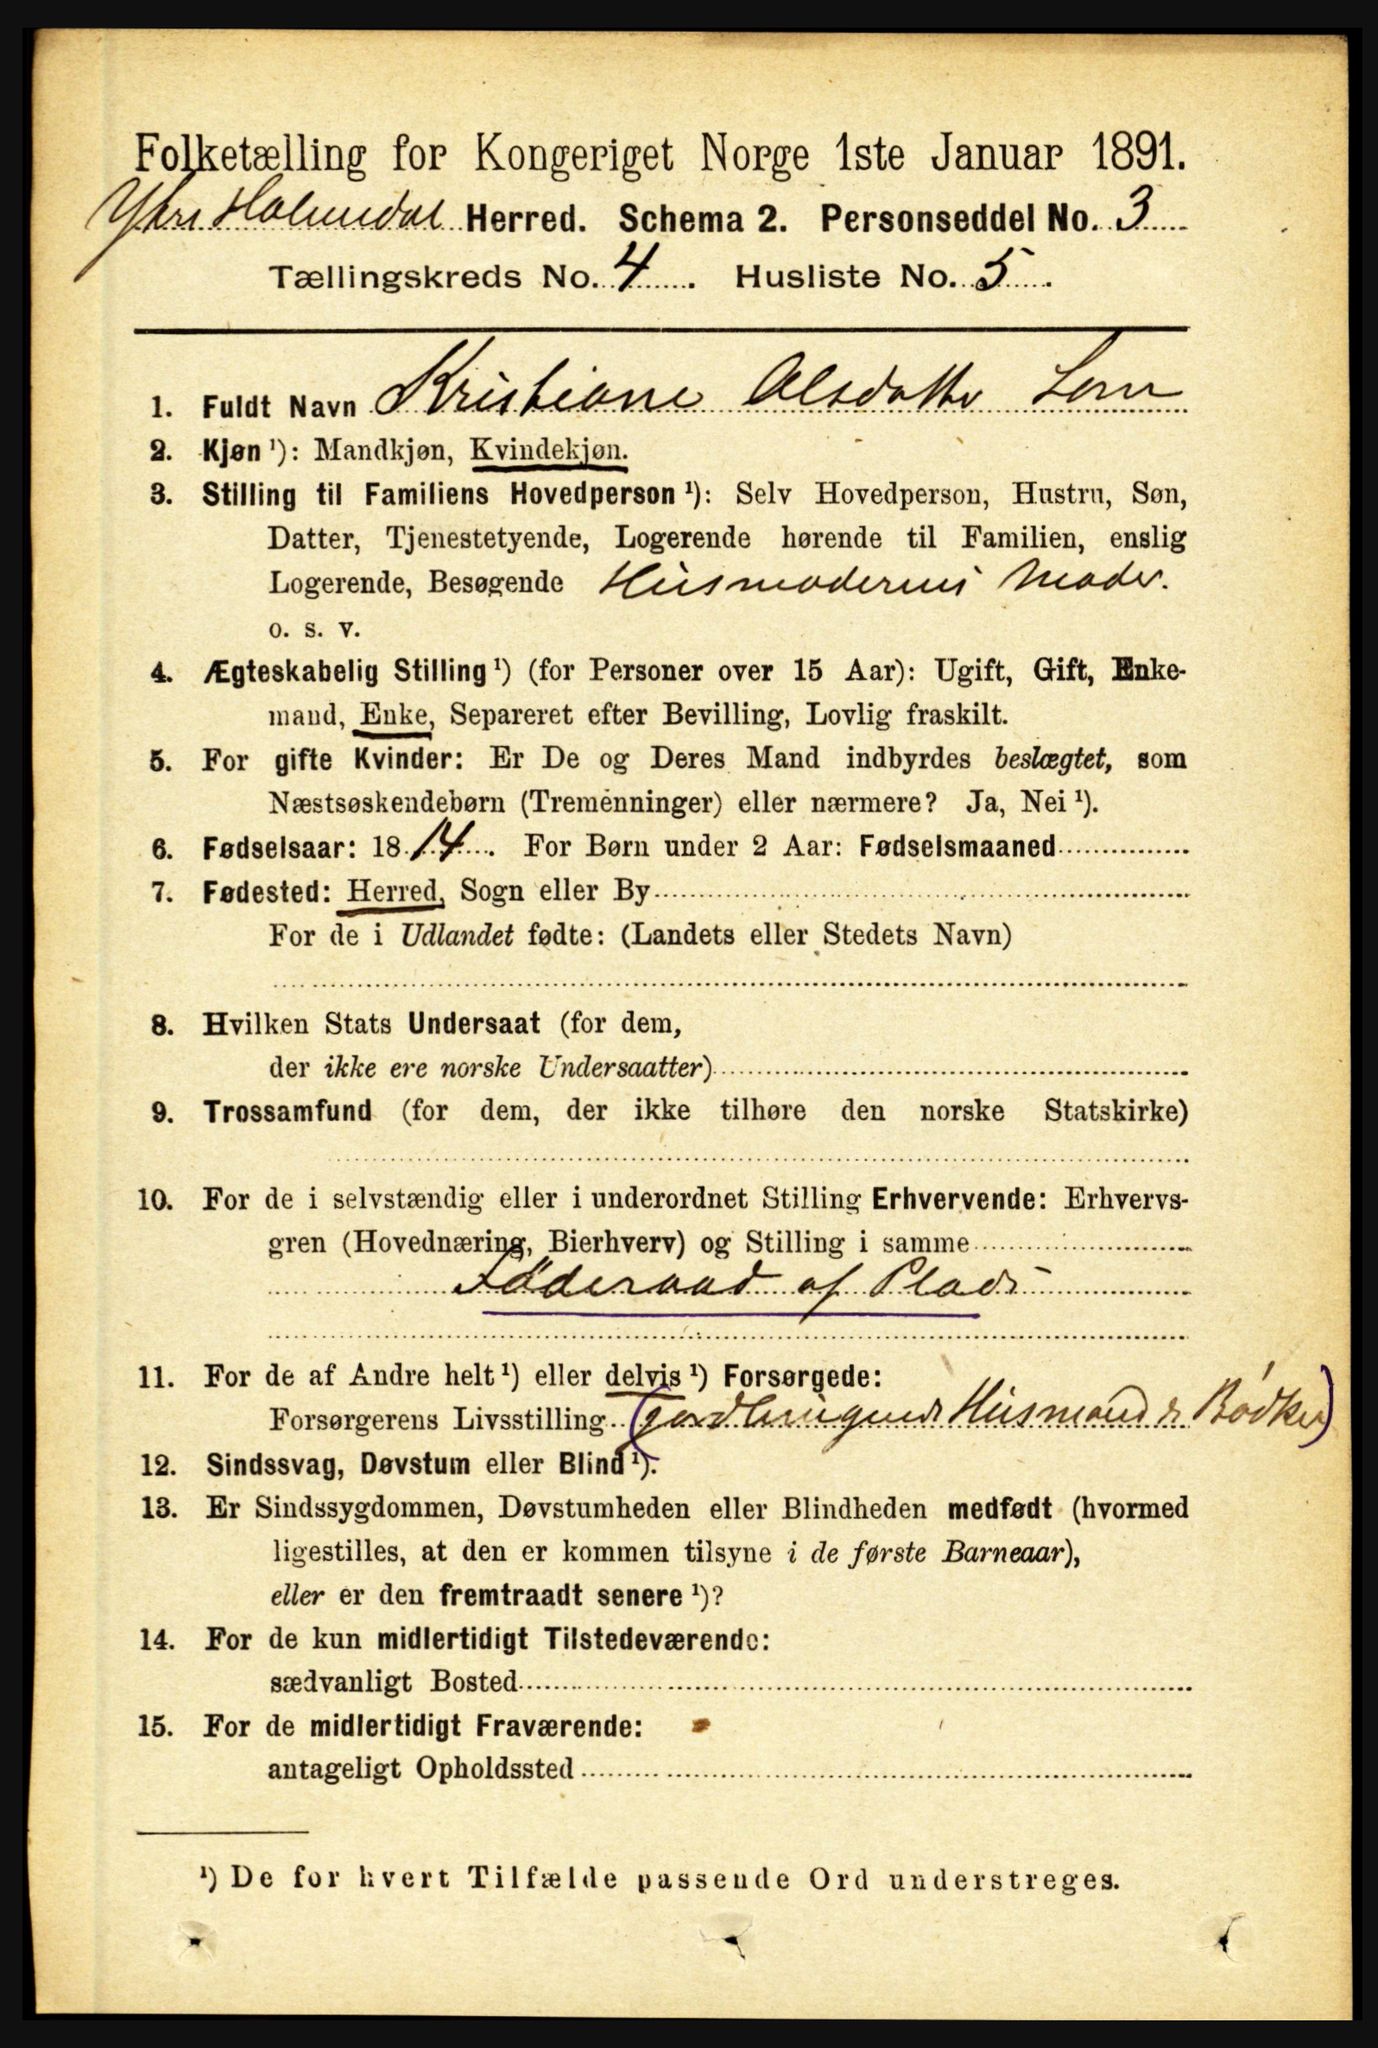 Folketælling for Kongeriget Norge 1ste Januar 1891.
Ytre Holmedal Herred. Schema 2. Personseddel No. 3
Tællingskreds No. 4. Husliste No. 5.
1. Fuldt Navn Kristiane Olsdatter
2. Kjøn ¹): Mandkjøn, Kvindekjøn.
3. Stilling til Familiens Hovedperson ¹): Selv Hovedperson, Hustru, Søn,
Datter, Tjenestetyende, Logerende hørende til Familien, enslig
Logerende, Besøgende Husmoderens Moder.
o. s. v.
4. Ægteskabelig Stilling ¹) (for Personer over 15 Aar): Ugift, Gift, Enke-
mand, Enke, Separeret efter Bevilling, Lovlig fraskilt.
5. For gifte Kvinder: Er De og Deres Mand indbyrdes beslægtet, som
Næstsøskendebørn (Tremenninger) eller nærmere? Ja, Nei ¹).
6. Fødselsaar: 1814. For Børn under 2 Aar: Fødselsmaaned
7. Fødested: Herred, Sogn eller By
For de i Udlandet fødte: (Landets eller Stedets Navn)
8. Hvilken Stats Undersaat (for dem,
der ikke ere norske Undersaatter)
9. Trossamfund (for dem, der ikke tilhøre den norske Statskirke)
10. For de i selvstændig eller i underordnet Stilling Erhvervende: Erhvervs-
gren (Hovednæring, Bierhverv) og Stilling i samme
Føderaad af Plads
11. For de af Andre helt ¹) eller delvis ¹) Forsørgede:
Forsørgerens Livsstilling (Jordbrugende Husmand & Bødker)
12. Sindssvag, Døvstum eller Blind ¹).
13. Er Sindssygdommen, Døvstumheden eller Blindheden medfødt (hvormed
ligestilles, at den er kommen tilsyne i de første Barneaar),
eller er den fremtraadt senere ¹)?
14. For de kun midlertidigt Tilstedeværende:
sædvanligt Bosted
15. For de midlertidigt Fraværende:
antageligt Opholdssted
¹) De for hvert Tilfælde passende Ord understreges.